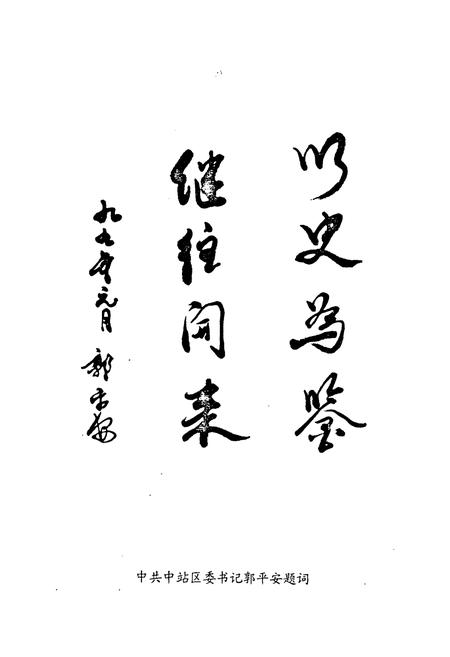 以史为鉴
继往开来
九九年元月 郭平安
中共中站区委书记郭平安题词